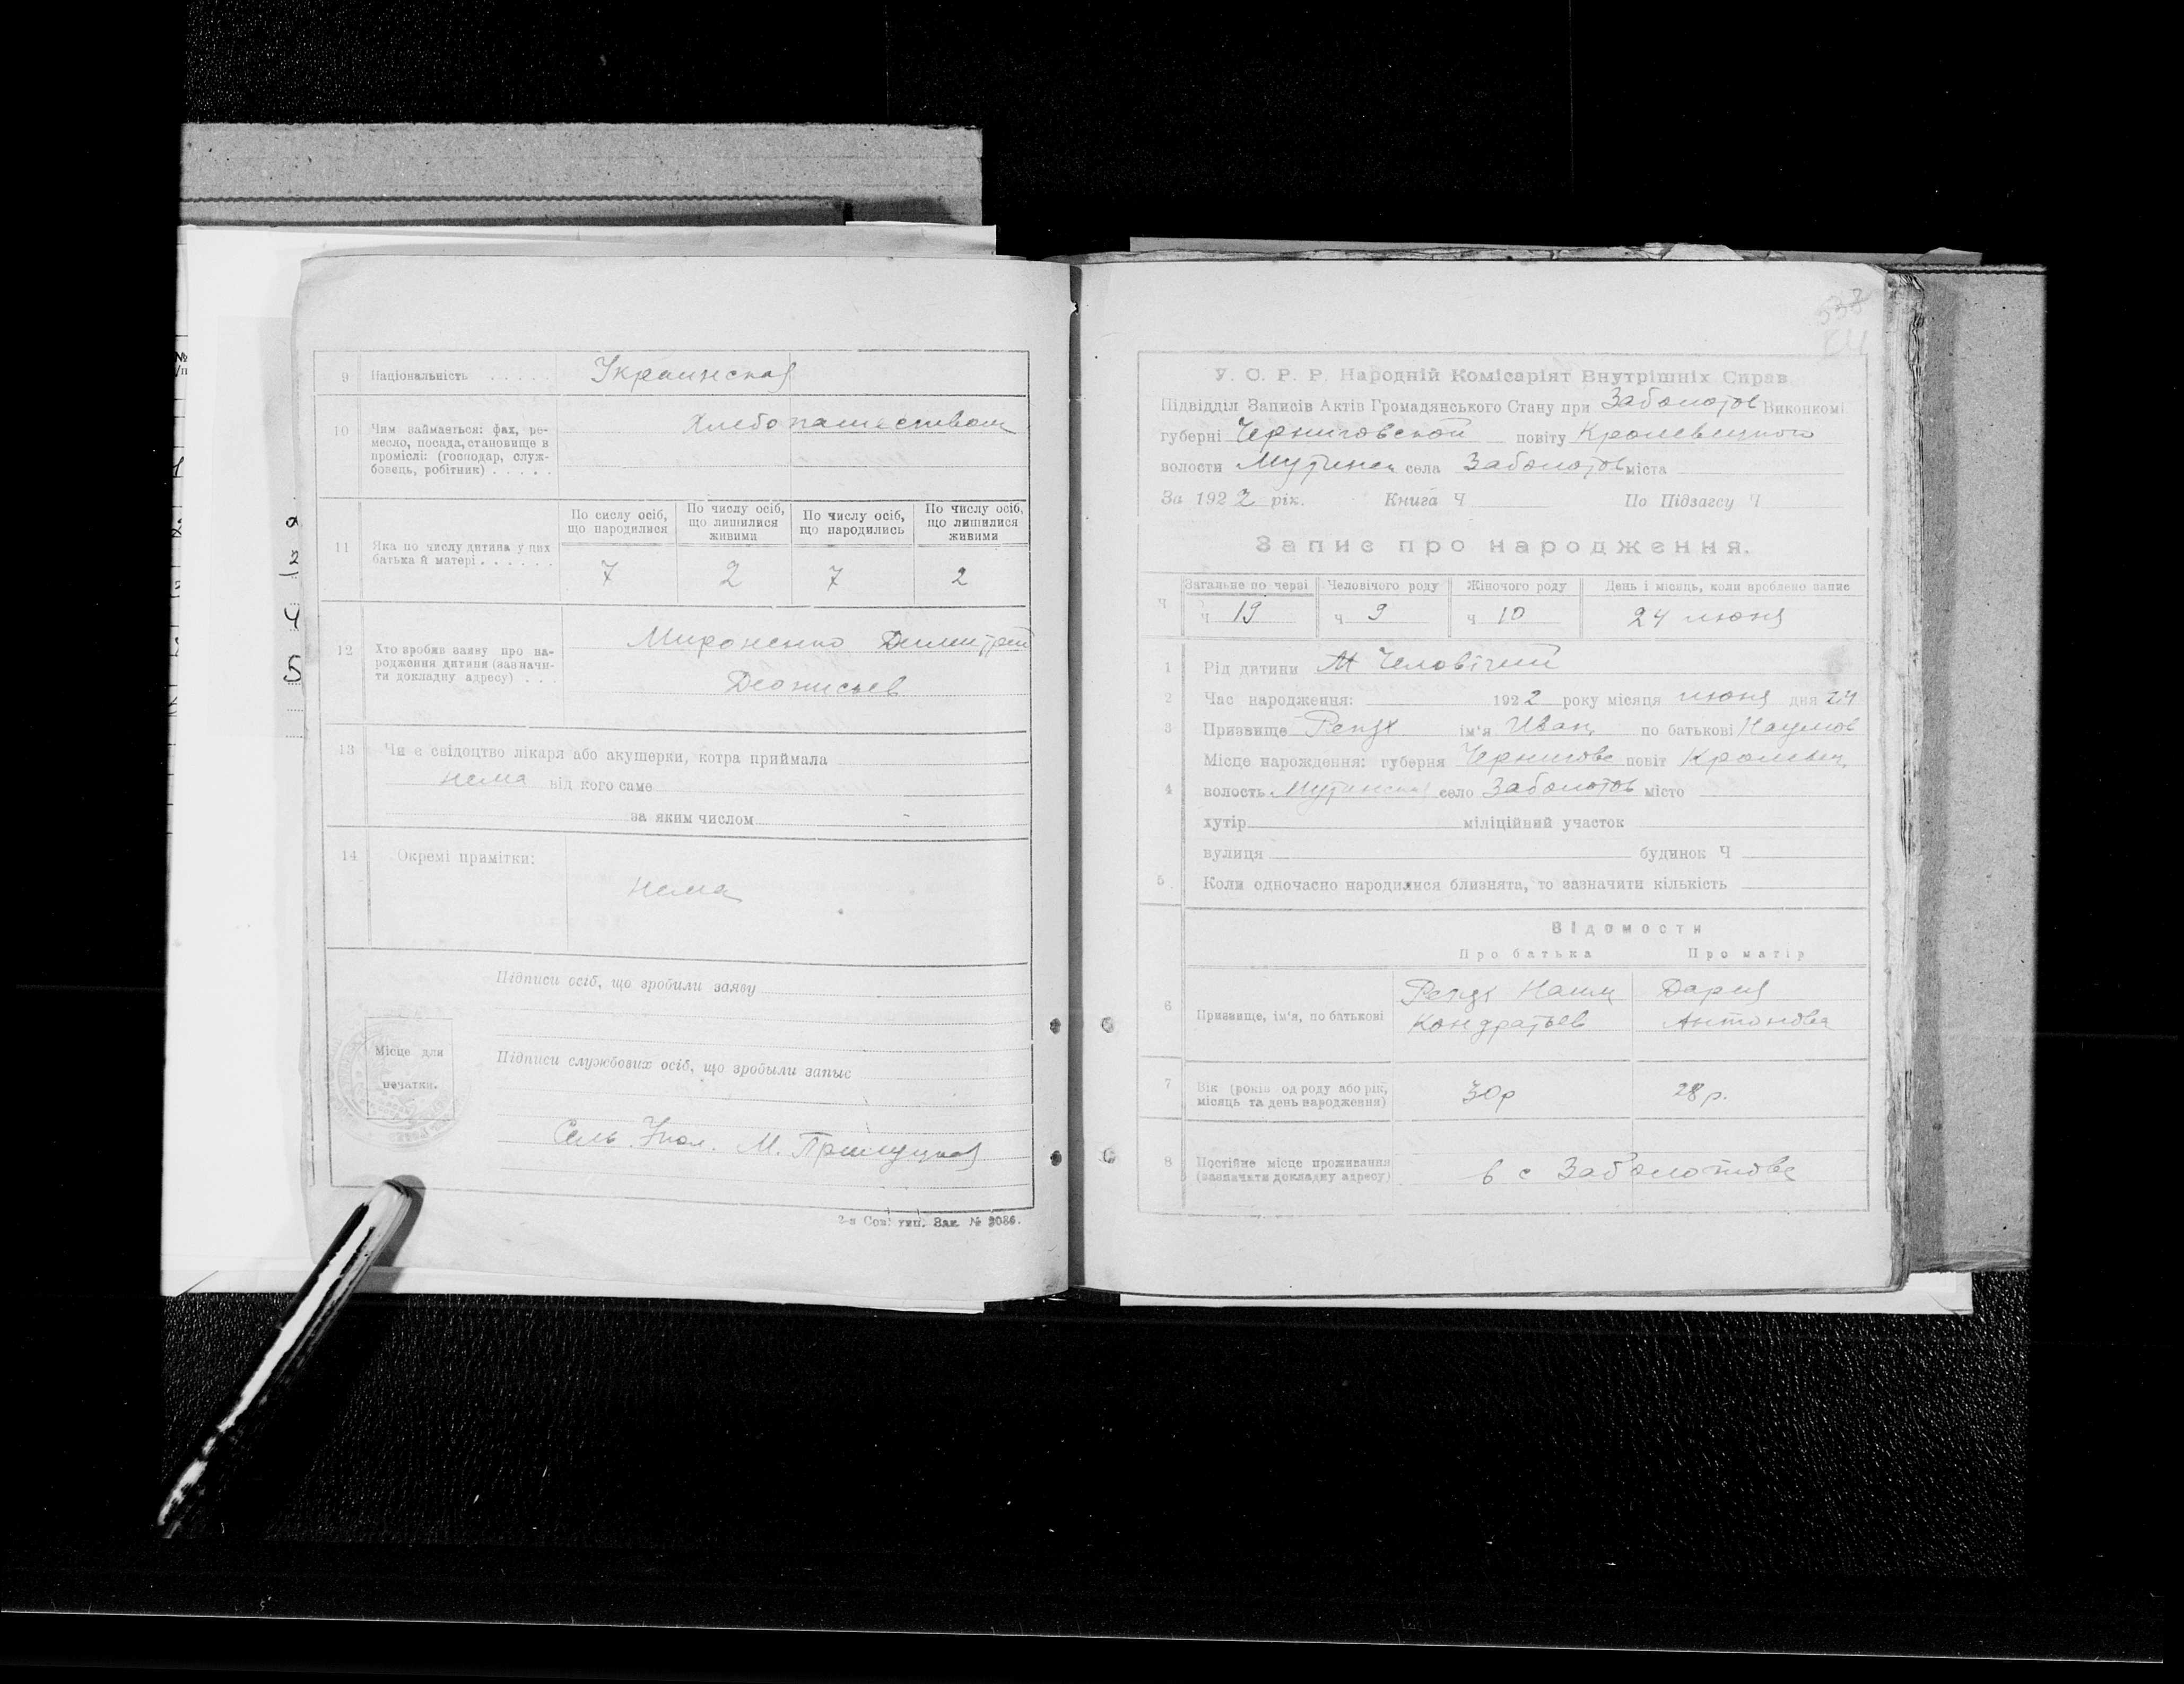 9 Національність Украинская
10 Чим займається: фах, ре-
месло, посада, становище в
промислі: (господар, служ-
бовець, робітник)
Хлебопашеством
11 Яка по числу дитина у цих
батька й матері
По сислу осіб,
що народилися
По числу осіб,
що лишилися
живими
По числу осіб,
що народились
По числу осіб,
що лишилися
живими
7 2 7 2
12 Хто зробив заяву про на-
родження дитини (зазначи-
ти докладну адресу)
Мироненко Димитрий
Деонисьев
13 Чи є свідоцтво лікаря або акушерки, котра приймала
нема від кого саме
за яким числом
14 Окремі примітки:
нема
Підписи осіб, що зробили заяву
Місце для
печатки.
Підписи службових осіб, що зробыли запыс
Сель. Упол. М. Прилуцкая
2-я Сов. тип. Зак. № 3086.
У. С. Р. Р. Народній Комісаріят Внутрішніх Справ
Підвідділ Записів Актів Громадянського Стану при Заболотов Виконкомі
губерні Черниговской повіту Кролевецкого
волости Мутинск села Заболотов міста
За 1922 рік. Книга Ч По Підзагсу Ч
Запис про народження.
Ч Загальне по черзі Человічого роду Жіночого роду День і місяць, коли зроблено запис
ч 19 ч 9 ч 10 24 июня
1 Рід дитини М Человічий
2 Час народження: 1922 року місяця июня дня 24
3 Призвище ім'я Иван по батькові Наумов
Місце народження: губерня Чернигове повіт Кролевец
4 волость Мутинская село Заболотов місто
хутір міліційний участок
вулиця будинок Ч
5 Коли одночасно народилися близнята, то зазначити кількість
Відомости
Про батька Про матір
6 Призвище, ім'я, по батькові
Наум
Кондратьев
Дария
Антонова
7 Вік (років од роду або рік,
місяць та день народження)
30р 28р.
8 Постійне місце проживання
(зазначати докладну адресу)
в с Заболотове